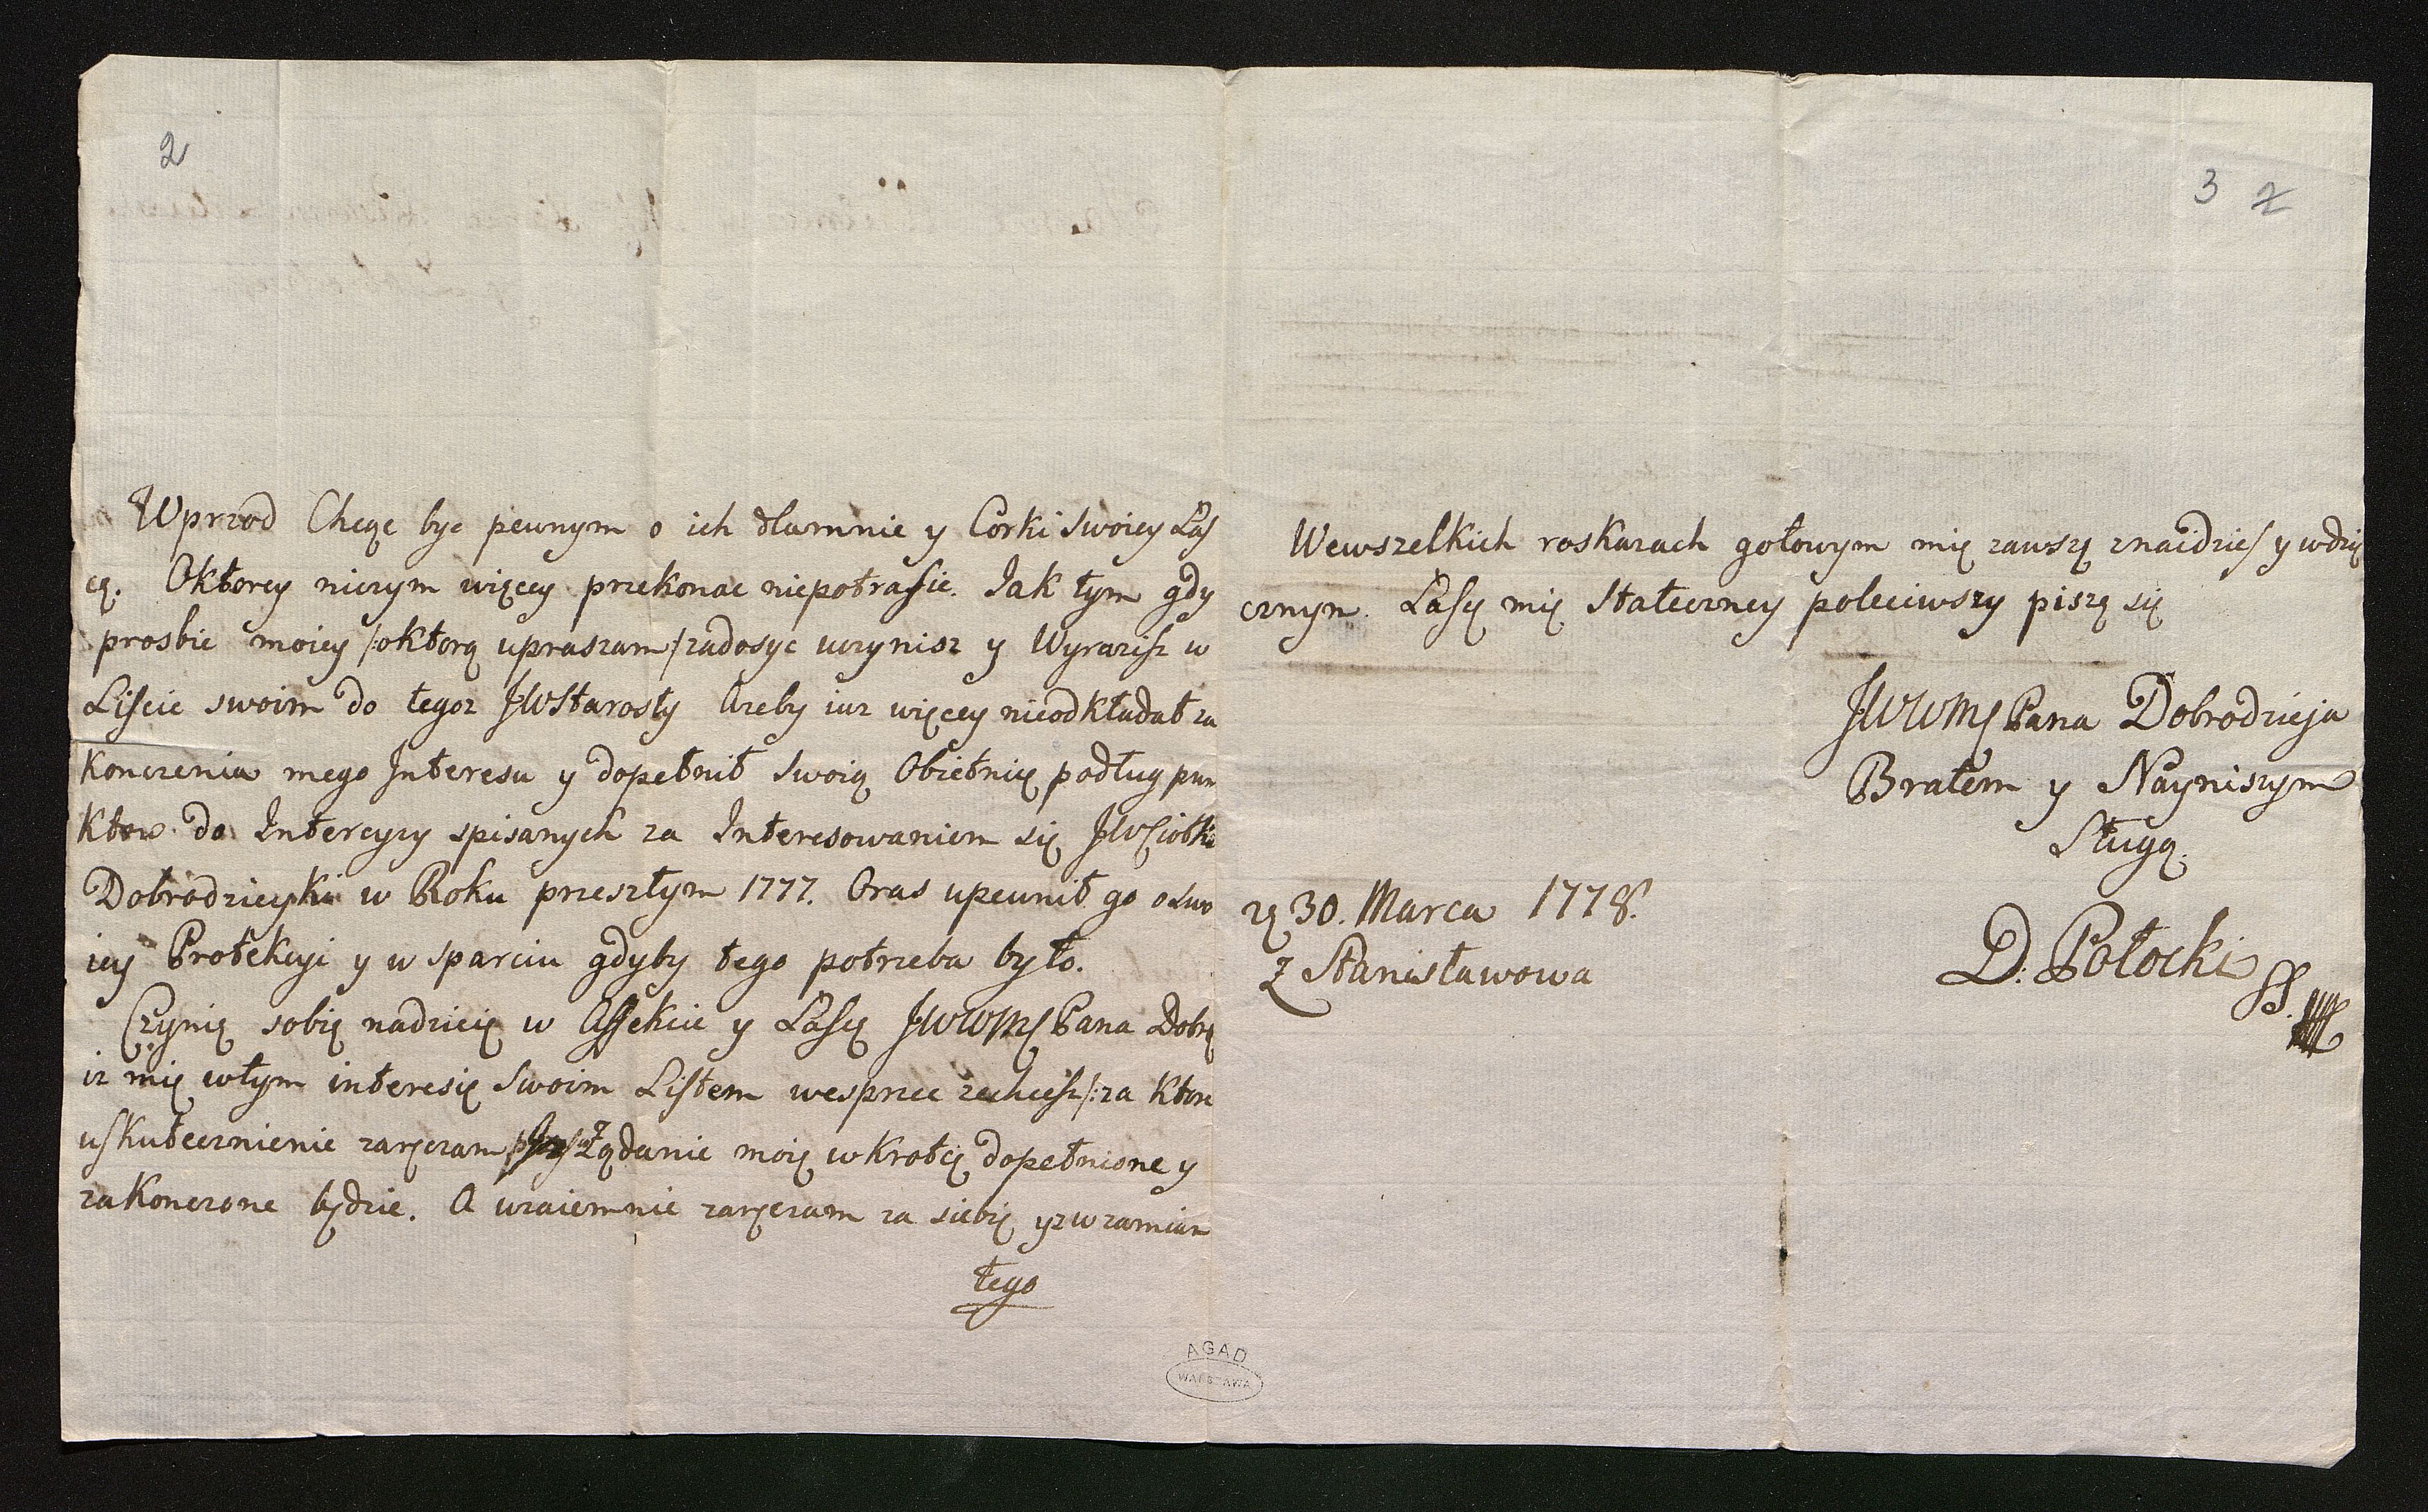 2
Wprzod Chcąc byc pewnym o ich dlamnie y Corki swoiey Łas
cę. Oktorey niczym więcey przekonac niepotrafie. Jak tym gdy
prosbie moiey /oktorą upraszam/ zadosyc uczynisz y Wyrazisz w
Liscie swoim do tegoz JWStarosty Azeby iuz więcey nieodkładał za
konczenia mego Interesu y dopełnił swoią Obietnię podług pun
ktow do Intercyzy spisanych za Interesowaniem się JW Ciotki
Dobrodzieyki w Roku przeszłym 1777. Oras upewnił go oswo
iey Protekcyi y w sparciu gdyby tego potrzeba było.
Czynię sobię nadzieię w Affekcie y Łascę JWWMS Pana Dobrę
iz mię wtym interesię swoim Listem wesprzec zechcesz /:za ktore
uskutecznienie zaręczam Ządanie moię wkrotcę dopełnione y
zakonczone będzie. A wzaiemnie zaręczam za siebię yz w zamian
tego
AGAD
WARSZAWA
3 2
Wewszelkich roskazach gotowym mię zawszę znaidzies y wdzię
cznym. Łascę mię stateczney poleciwszy piszę się
JWWMS Pana Dobrodzieja
Bratem y Nayniszym
Sługą.
D: Potocki
SS.
zę 30. Marca 1778.
z Stanisławowa